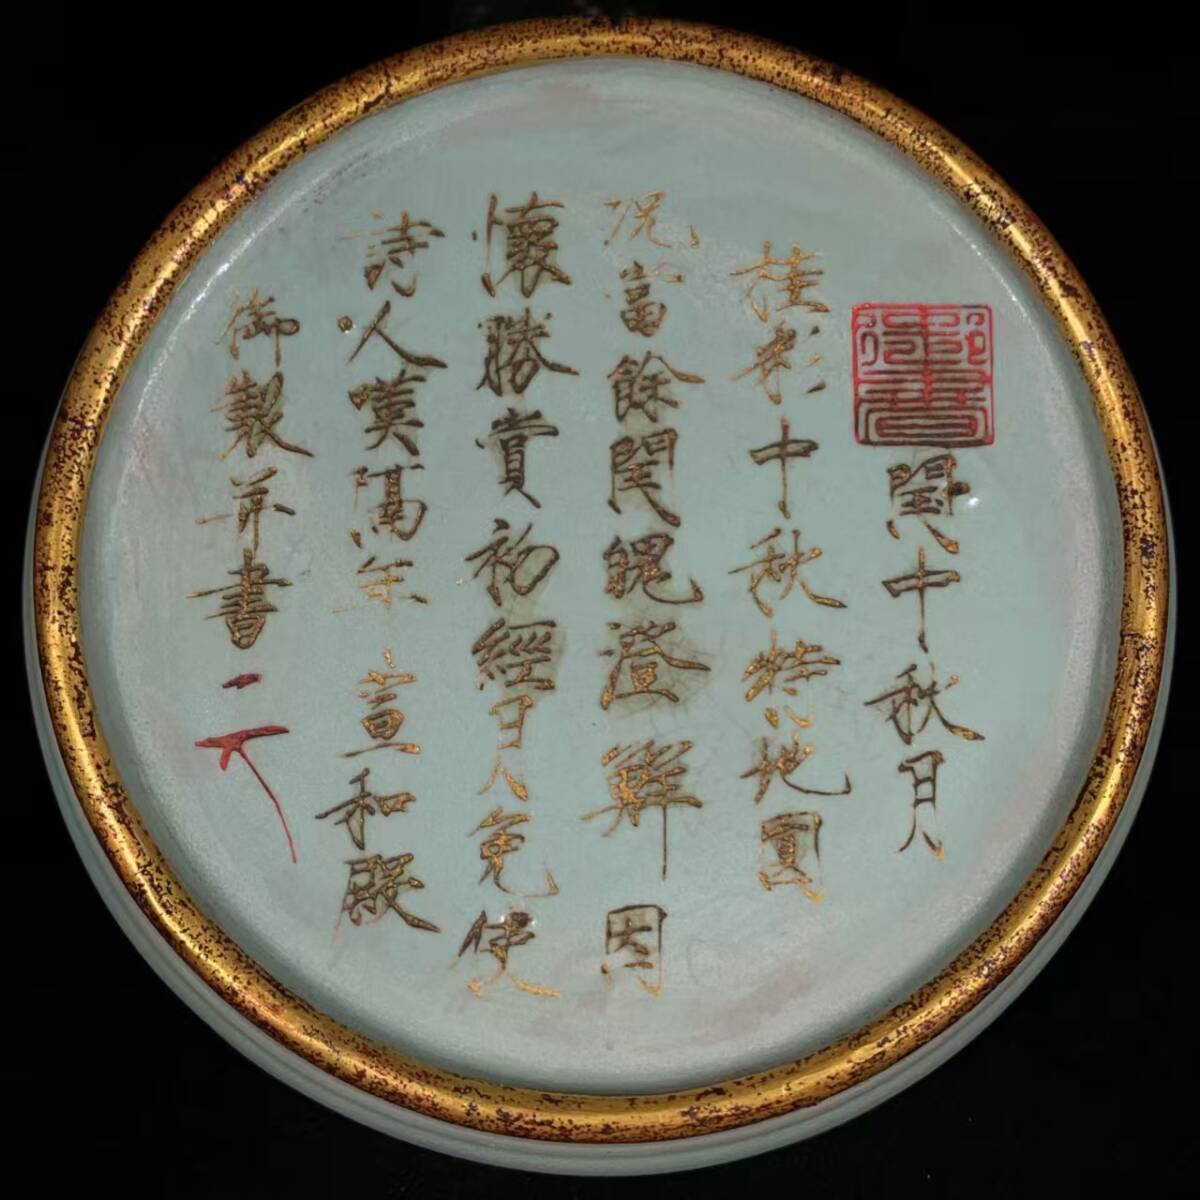 御書
閏中秋月
桂彩中秋特地圓
況當餘閏魄澄鮮因
懷勝賞初經月免使
詩人嘆隔年 宣和殿
御製并書